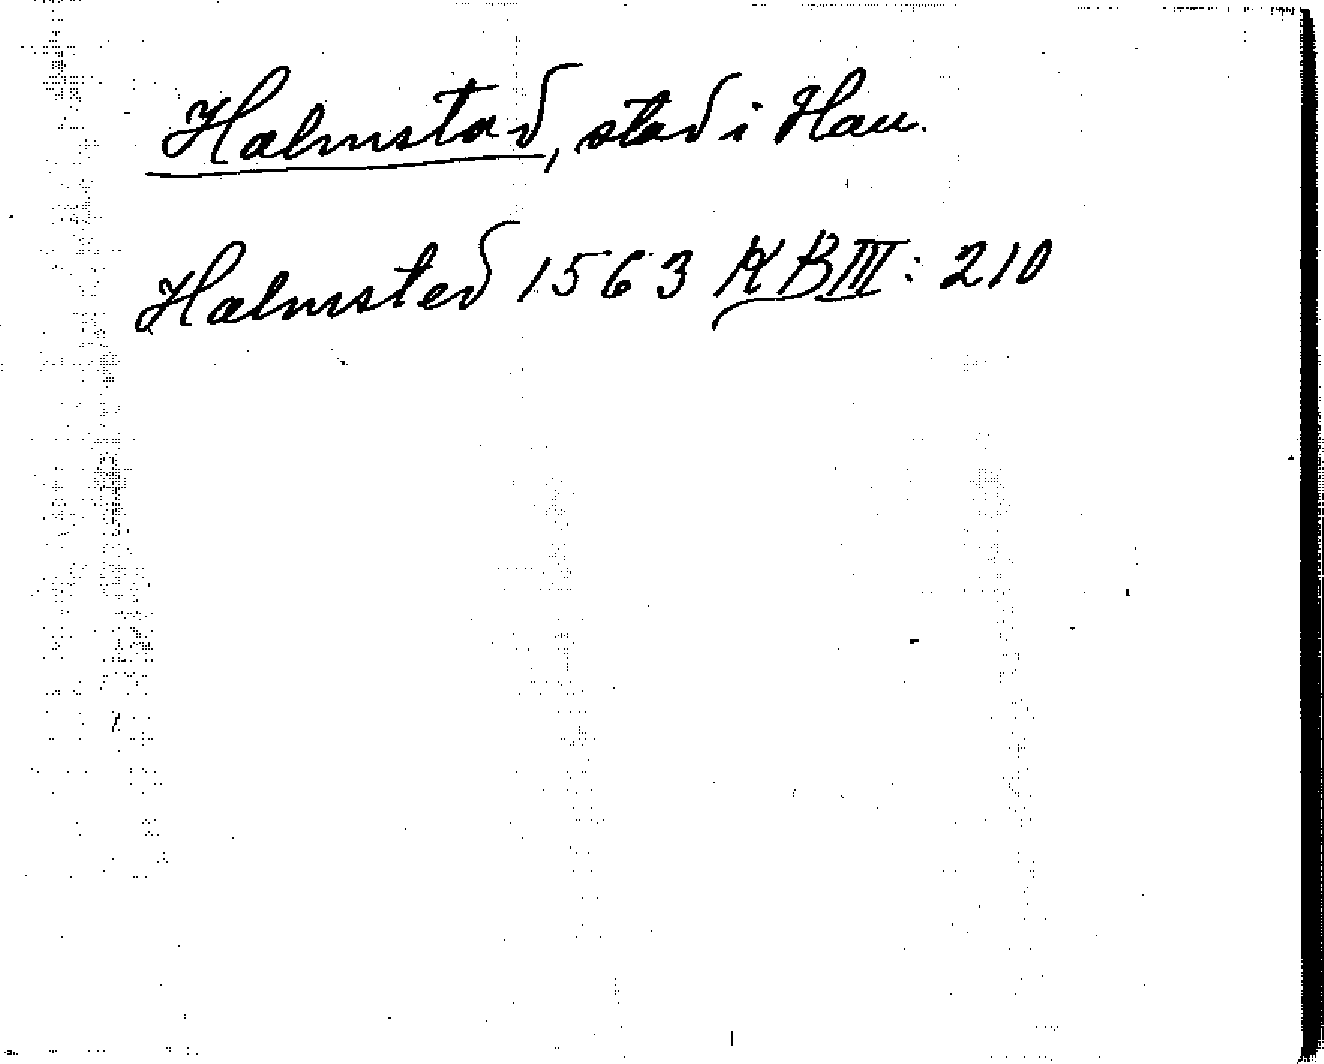 Halmstad, stad i Hall.
Halmsted 1563 KB III: 210